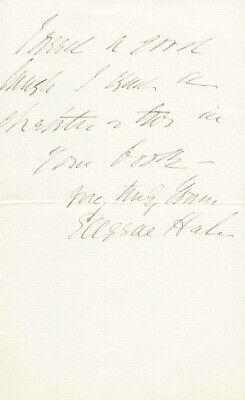 I need a good
laugh I read a
chapter or two in
your book –
Very truly yours
Hale